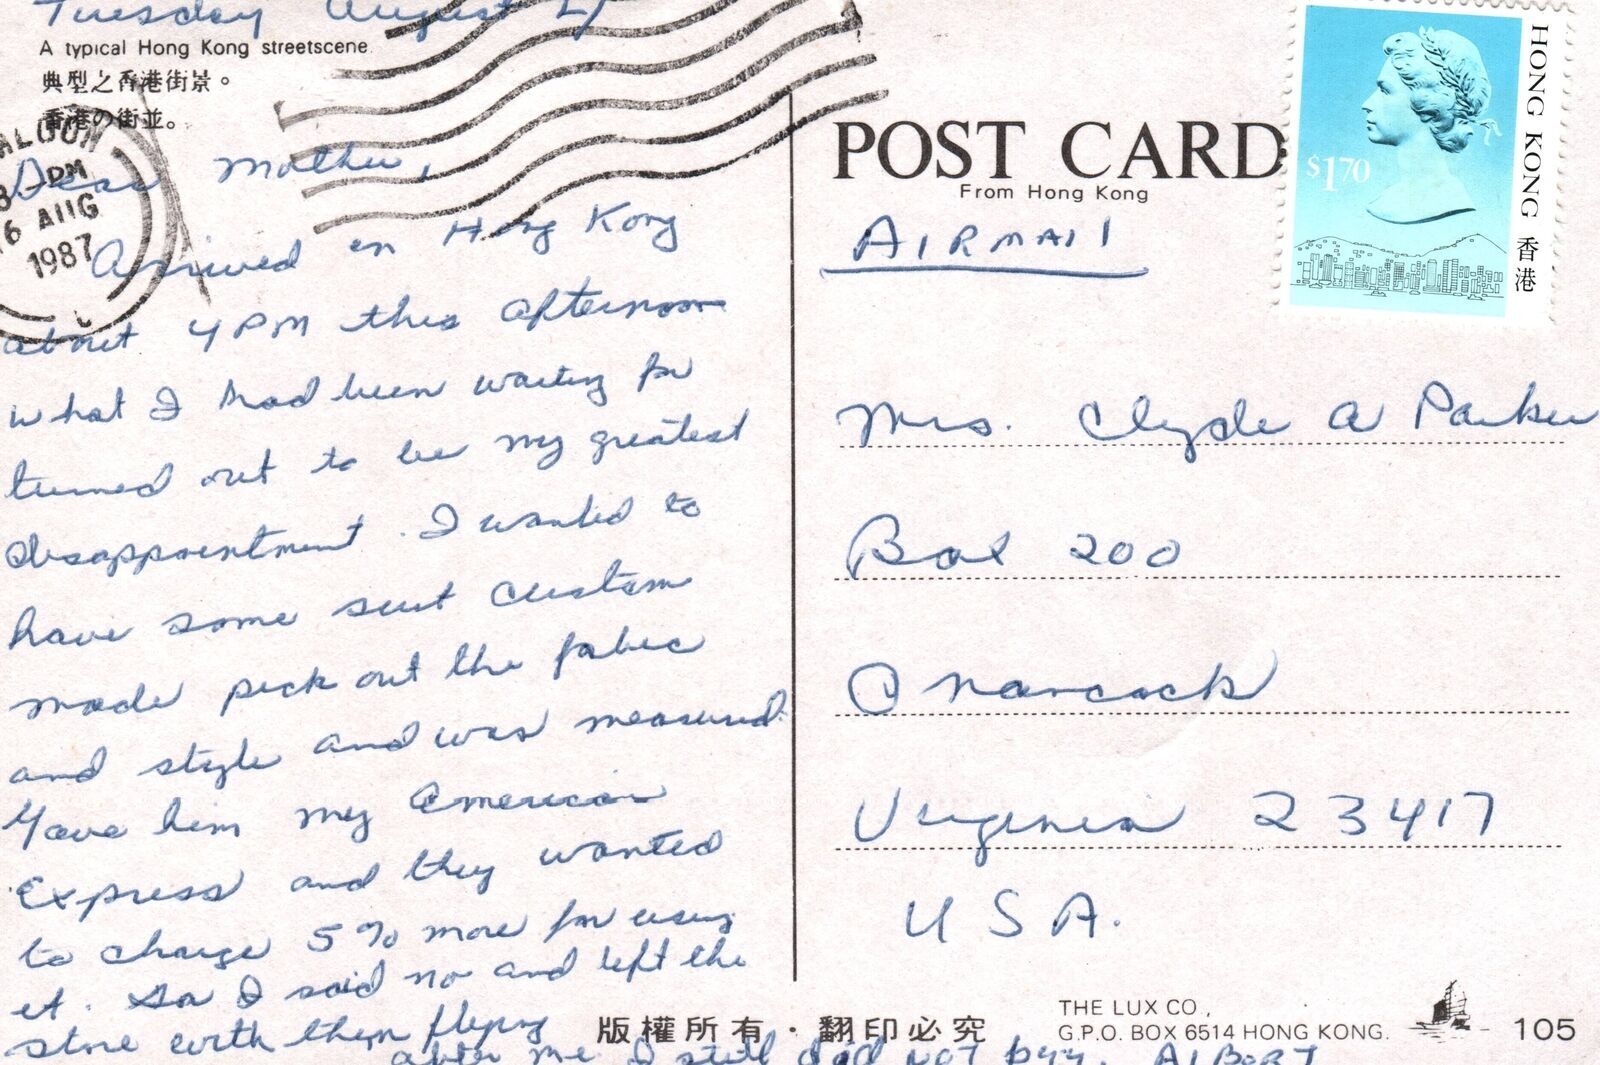 Tuesday August 25
A typical Hong Kong streetscene.
典型之香港街景。
香港の街並。
ALOON
PM
6 AUG
1987
Dear Mother,
Arrived in Hong Kong
about 4 PM this afternoon
what I had been waiting for
turned out to be my greatest
disappointment. I wanted to
have some suit custom
made pick out the fabric
and style and was measured.
Gave him my American
Express and they wanted
to charge 5% more for using
it. So I said no and left the
store with them flying
after me I still did not buy. Albert
POST CARD
From Hong Kong
AIRMAIL
HONG KONG 香港
$1.70
Mrs. Clyde A Parker
Box 200
Onancock
Virginia 23417
USA.
版權所有・翻印必究
THE LUX CO.,
G.P.O. BOX 6514 HONG KONG.
105